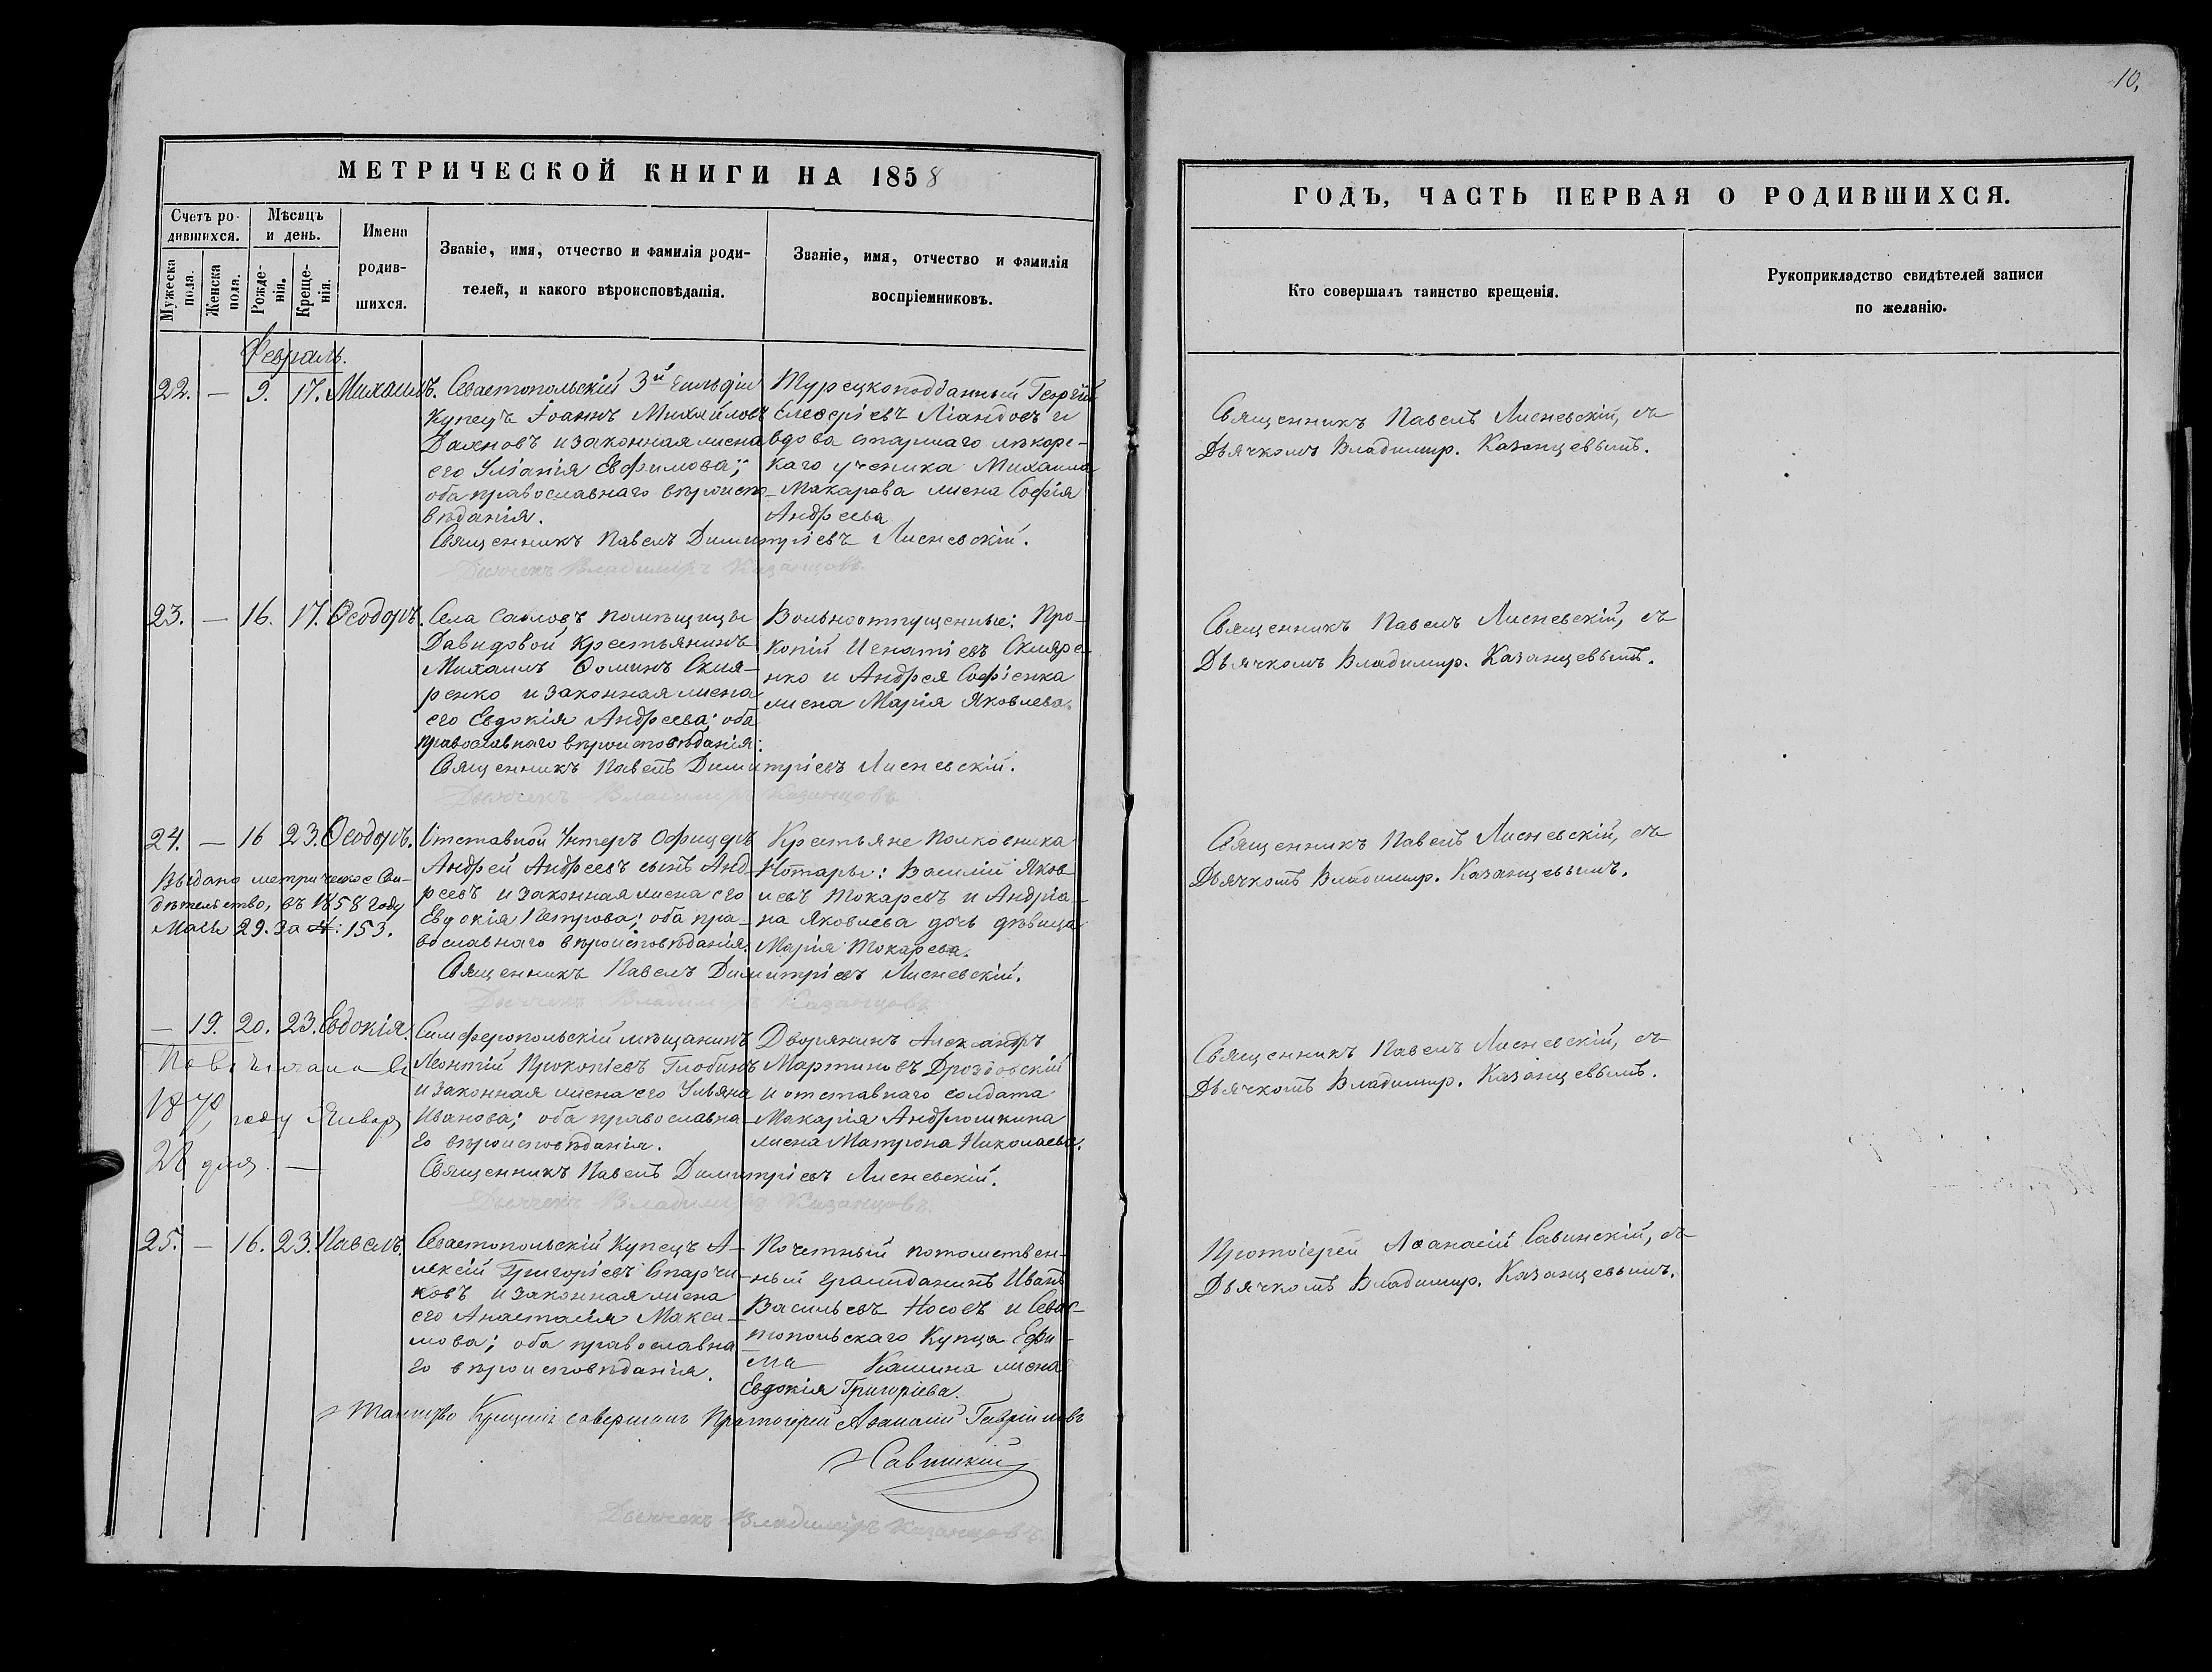 10.
МЕТРИЧЕСКОЙ КНИГИ НА 1858
Счетъ родившихся.
Мѣсяцъ и день.
Мужеска пола.
Женска пола.
Рожденія.
Крещенія.
Имена родившихся.
Званіе, имя, отчество и фамилія роди-
телей, и какого вѣроисповѣданія.
Званіе, имя, отчество и фамилія
воспріемниковъ.
Февраль.
22. — 9. 17. Михаилъ.
Севастопольскій 3й Гильдіи
Купецъ Іоаннъ Михайловъ
и законная жена
его Уліанія Евфимова;
оба православнаго вѣроиспо-
вѣданія.
Турецкоподданный Георгій
Елевѳеріевъ Ліандовъ и
вдова старшаго лѣкарс-
каго ученика Михаила
Макарова жена Софія
Андреева
Священникъ Павелъ Димитріевъ Лисневскій.
Дьячекъ Владиміръ Казанцовъ.
23. — 16. 17. Ѳеодоръ.
Села Сабловъ помѣщицы
Давидовой, Крестьянинъ
Михаилъ Ѳоминъ Скля-
ренко и законная жена
его Евдокія Андреева; оба
православнаго вѣроисповѣданія:
Вольноотпущенные: Про-
копій Игнатіевъ Скляре-
нко и Андрея Софіенка
жена Марія Яковлева.
Священникъ Павелъ Димитріевъ Лисневскій.
Дьячекъ Владиміръ Казанцовъ
24. — 16 23. Ѳеодоръ.
Выдано метрическое Сви-
дѣтельство, въ 1858 году
Маія 29. За №: 153.
Отставной Унтеръ Офицеръ
Андрей Андреевъ сынъ Анд-
реевъ и законная жена его
Евдокія Петрова; оба пра-
вославнаго вѣроисповѣданія.
Крестьяне Полковника
Нотары: Василій Яков-
левъ Токаревъ и Андріа-
на Яковлева дочь дѣвица
Марія Токарева.
Священникъ Павелъ Димитріевъ Лисневскій.
Дьячекъ Владиміръ Казанцовъ
— 19. 20. 23. Евдокія.
Повѣнчана въ
1870, году Января
28 дня. —
Симферопольскій мѣщанинъ
Леонтій Прокопіевъ Глобинъ
и законная жена его Ульяна
Иванова; оба православна-
го вѣроисповѣданія.
Дворянинъ Александръ
Мартиновъ Дроздовскій
и отставнаго солдата
Макарія Андрюшкина
жена Матрона Николаева.
Священникъ Павелъ Димитріевъ Лисневскій.
Дьячекъ Владиміръ Казанцовъ.
25. — 16. 23. Павелъ.
Севастопольскій Купецъ А-
лексій Григоріевъ Старчи-
ковъ и законная жена
его Анастасія Макси-
мова; оба православна
го вѣроисповѣданія.
Почетный потомствен-
ный гражданинъ Иванъ
Васильевъ Носовъ и Севас-
топольскаго Купца Ефи-
ма Кашина жена
Евдокія Григоріева.
Таинство Крещенія совершалъ Протоіерей Аѳанасій Гавріиловъ
Савинскій
Дьячекъ Владиміръ Казанцовъ.
ГОДЪ, ЧАСТЬ ПЕРВАЯ О РОДИВШИХСЯ.
Кто совершалъ таинство крещенія.
Рукоприкладство свидѣтелей записи
по желанію.
Священникъ Павелъ Лисневскій, съ
Дьячкомъ Владимир. Казанцевымъ.
Священникъ Павелъ Лисневскій, съ
Дьячкомъ Владимир. Казанцевымъ.
Священникъ Павелъ Лисневскій, съ
Дьячкомъ Владимир. Казанцевымъ.
Священникъ Павелъ Лисневскій, съ
Дьячкомъ Владимир. Казанцевымъ.
Протоіерей Аѳанасій Савинскій, съ
Дьячкомъ Владимир. Казанцевымъ.